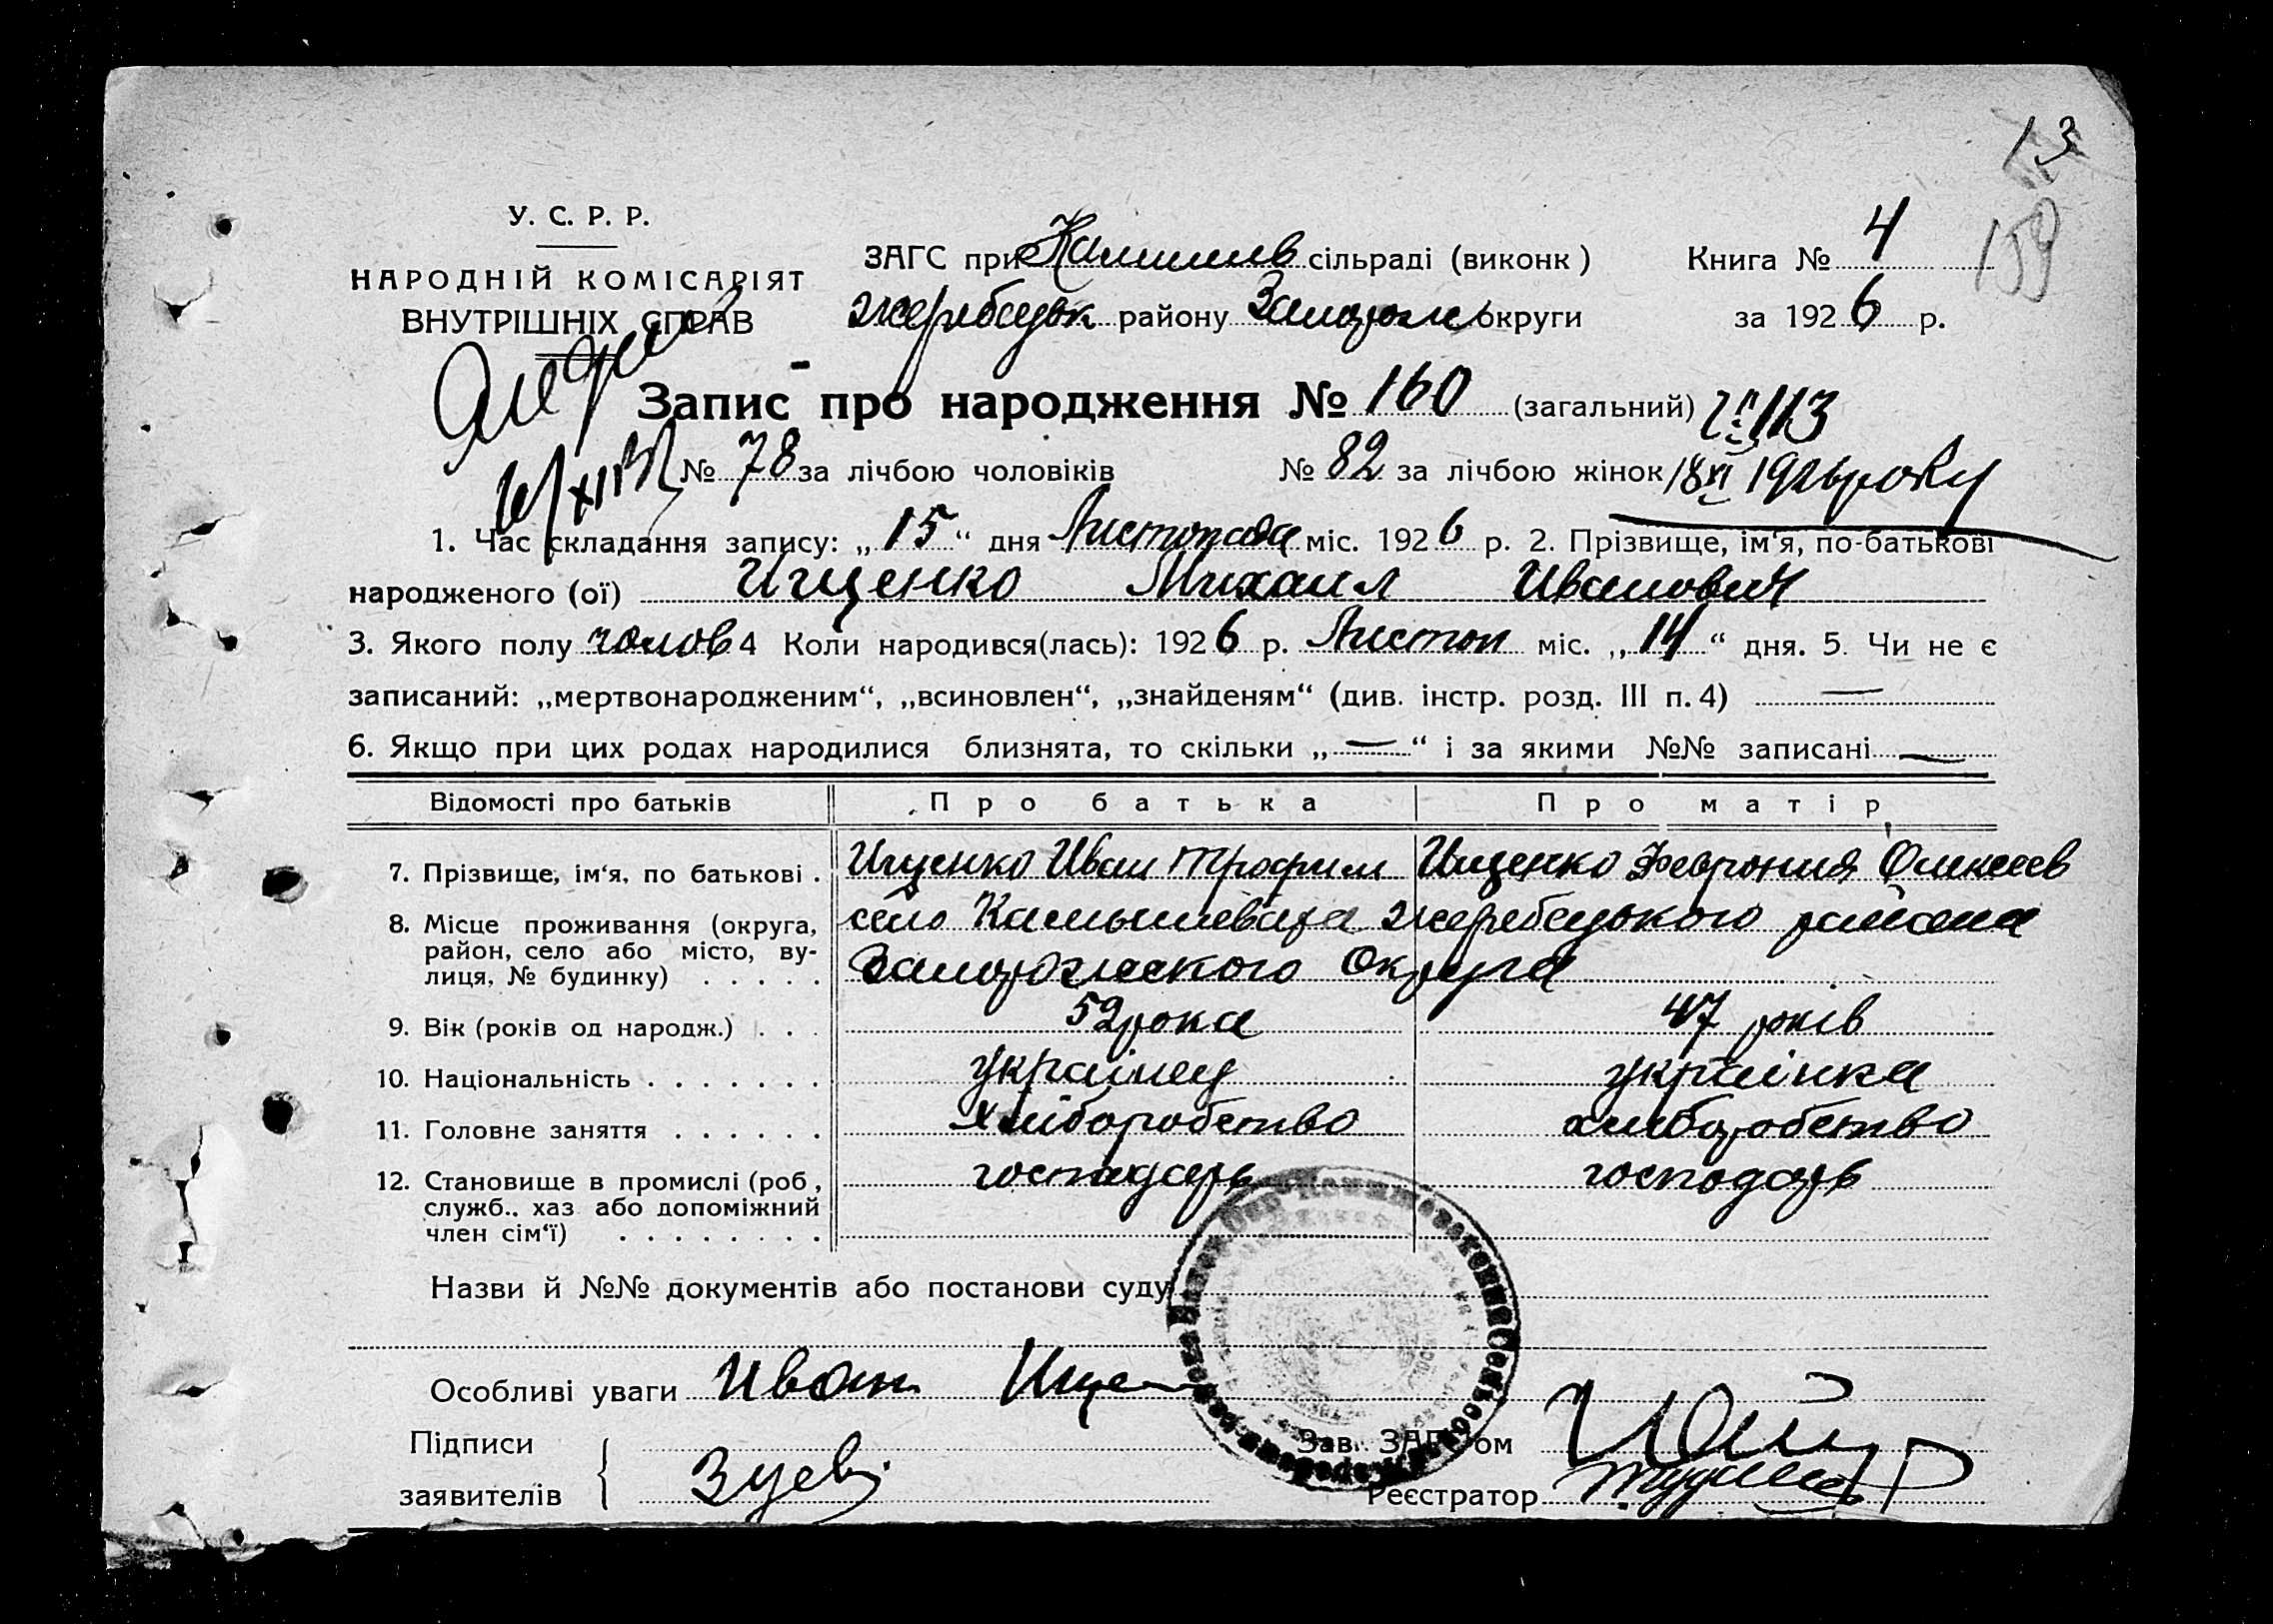 13
159
У. С. Р. Р.
НАРОДНІЙ КОМІСАРІЯТ
ВНУТРІШНІХ СПРАВ
ЗАГС при Камишев сільраді (виконк)
Жеребецьк району Запорож округи
Книга № 4
за 1926 р.
Запис про народження № 160 (загальний) 113
№ 78 за лічбою чоловіків № 82 за лічбою жінок 18 XI 1926 року
1. Час складання запису: „15“ дня Листопада міс. 1926 р. 2. Прізвище, ім'я, по-батькові
народженого (ої) Ищенко Михаил Иванович
3. Якого полу чолов 4 Коли народився(лась): 1926 р. Листоп міс. „14“ дня. 5. Чи не є
записаний: „мертвонародженим“, „всиновлен“, „знайденям“ (див. інстр. розд. III п. 4) —
6. Якщо при цих родах народилися близнята, то скільки „—“ і за якими №№ записані —
Відомості про батьків Про батька Про матір
7. Прізвище, ім'я, по батькові . Ищенко Иван Трофим Ищенко Феврония Олексеев
8. Місце проживання (округа, село Камышеваха Жеребецького района
район, село або місто, ву-
лиця, № будинку) . . . . . Запорожского Округа
9. Вік (років од народж.) . . . 52 рока 47 років
10. Національність . . . . . . . українец українка
11. Головне заняття . . . . . . хліборобство хліборобство
12. Становище в промислі (роб, господарь господарь
служб., хаз або допоміжний
член сім'ї) . . . . . . . .
Назви й №№ документів або постанови суду
Особливі уваги Иван Ище
Підписи
заявителів Зуев
Зав. ЗАГСом
Реєстратор